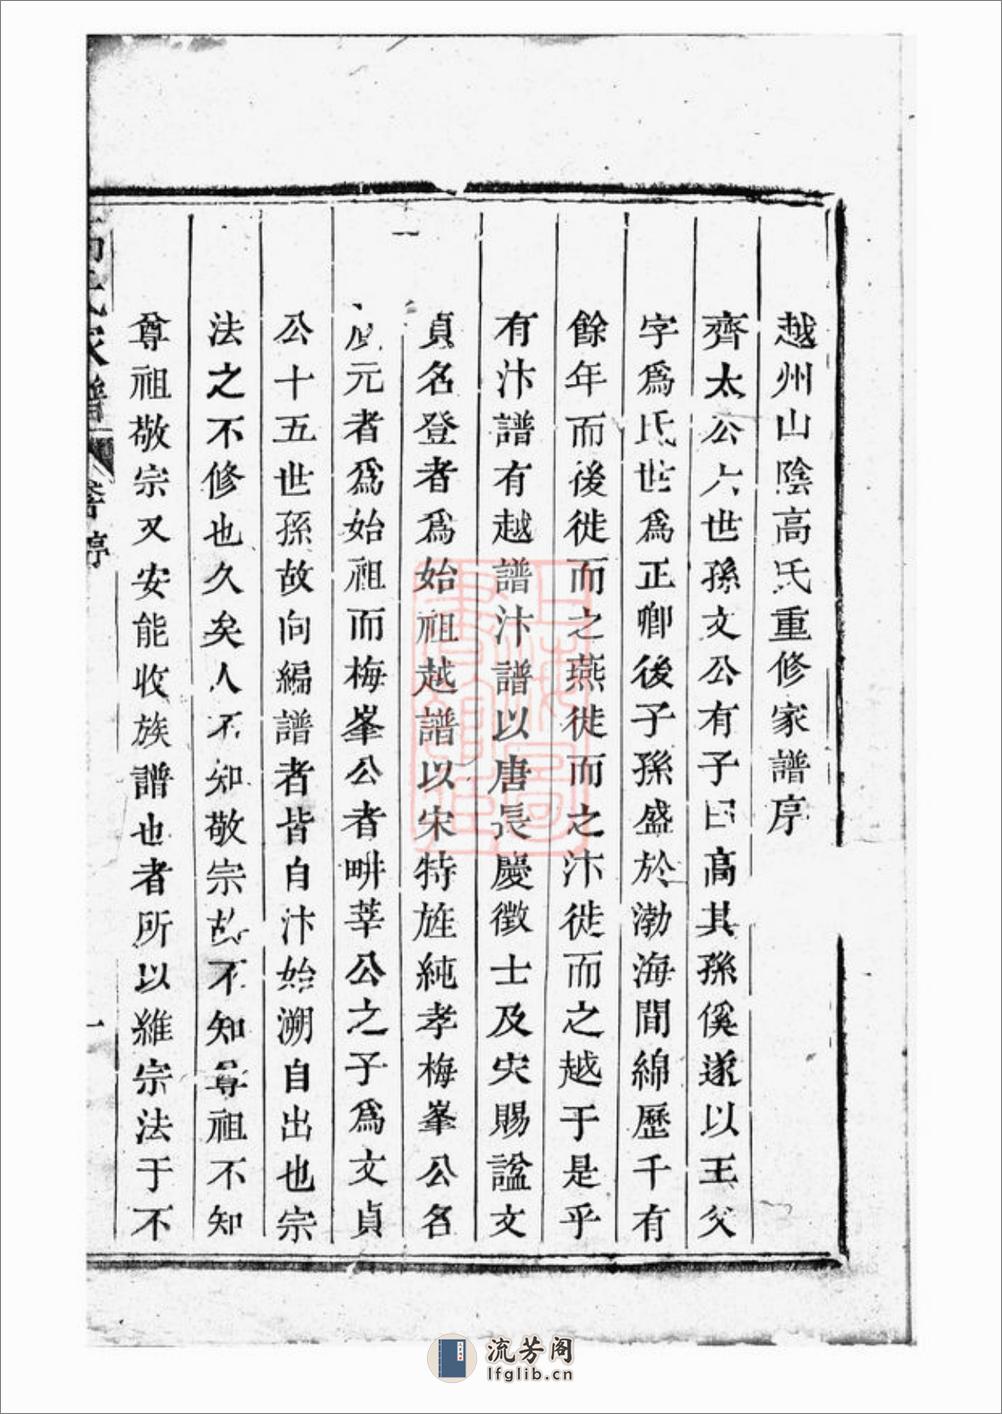 越州山陰高氏重修家譜序
齊太公六世孫文公有子曰高其孫傒遂以王父
字爲氏世爲正卿後子孫盛於渤海間綿歷千有
餘年而後徙而之燕徙而之汴徙而之越于是乎
有汴譜有越譜汴譜以唐長慶徵士及宋賜諡文
貞名登者爲始祖越譜以宋特旌純孝梅峯公名
元者爲始祖而梅峯公者畊莘公之子爲文貞
公十五世孫故向編譜者皆自汴始溯自出也宗
法之不修也久矣人不知敬宗故不知尊祖不知
尊祖敬宗又安能收族譜也者所以維宗法于不
氏家譜
序
一
流芳阁
lfglib.cn